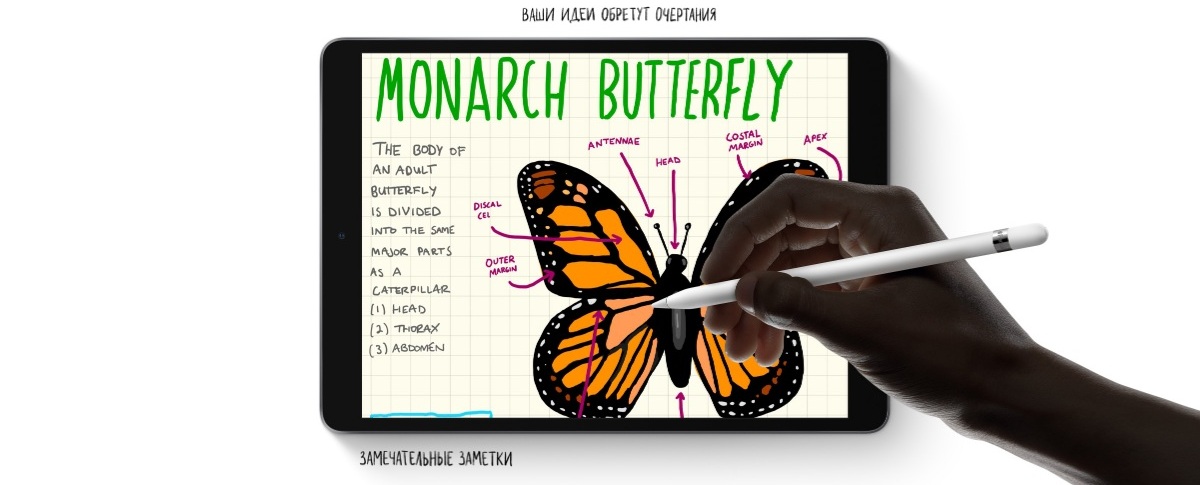 ВАШИ ИДЕИ ОБРЕТУТ ОЧЕРТАНИЯ
MONARCH BUTTERFLY
THE BODY OF
AN ADULT
BUTTERFLY
IS DIVIDED
INTO THE SAME
MAJOR PARTS
AS A
CATERPILLAR
(1) HEAD
(2) THORAX
(3) ABDOMEN
ANTENNAE
HEAD
COSTAL
MARGIN
APEX
DISCAL
CEL
OUTER
MARGIN
ЗАМЕЧАТЕЛЬНЫЕ ЗАМЕТКИ